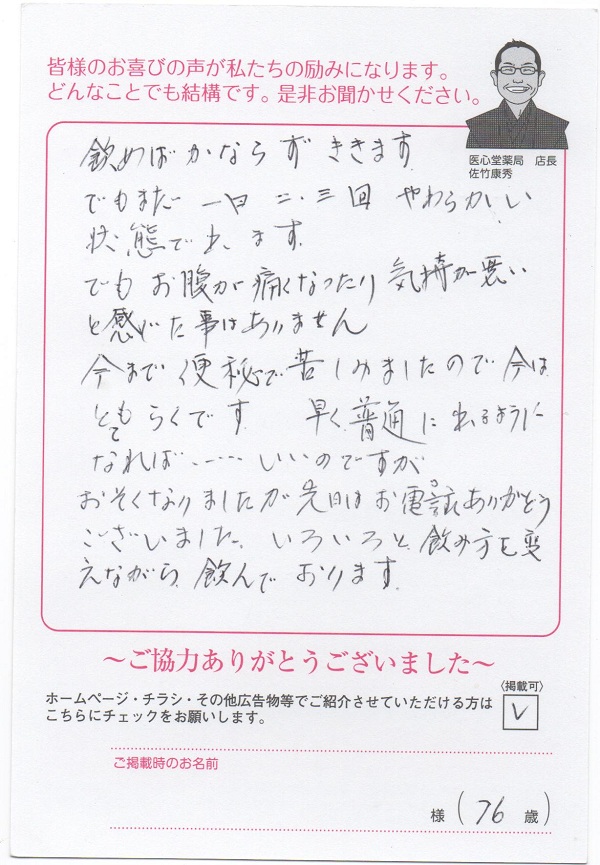 皆様のお喜びの声が私たちの励みになります。
どんなことでも結構です。是非お聞かせください。
医心堂薬局 店長
佐竹康秀
飲めばかならず ききます
でもまだ 一日 二・三回 やわらかい
状態で出ます。
でも お腹が痛くなったり 気持が悪い
と感じた事はありません
今まで便秘で苦しみましたので今は
とてもらくです 早く普通に出るように
なれば‥‥‥いいのですが
おそくなりましたが先日はお電話ありがとう
ございました。いろいろと飲み方を変
えながら 飲んでおります。
〜ご協力ありがとうございました〜
〈掲載可〉
ホームページ・チラシ・その他広告物等でご紹介させていただける方は
こちらにチェックをお願いします。
ご掲載時のお名前
様 (76歳)